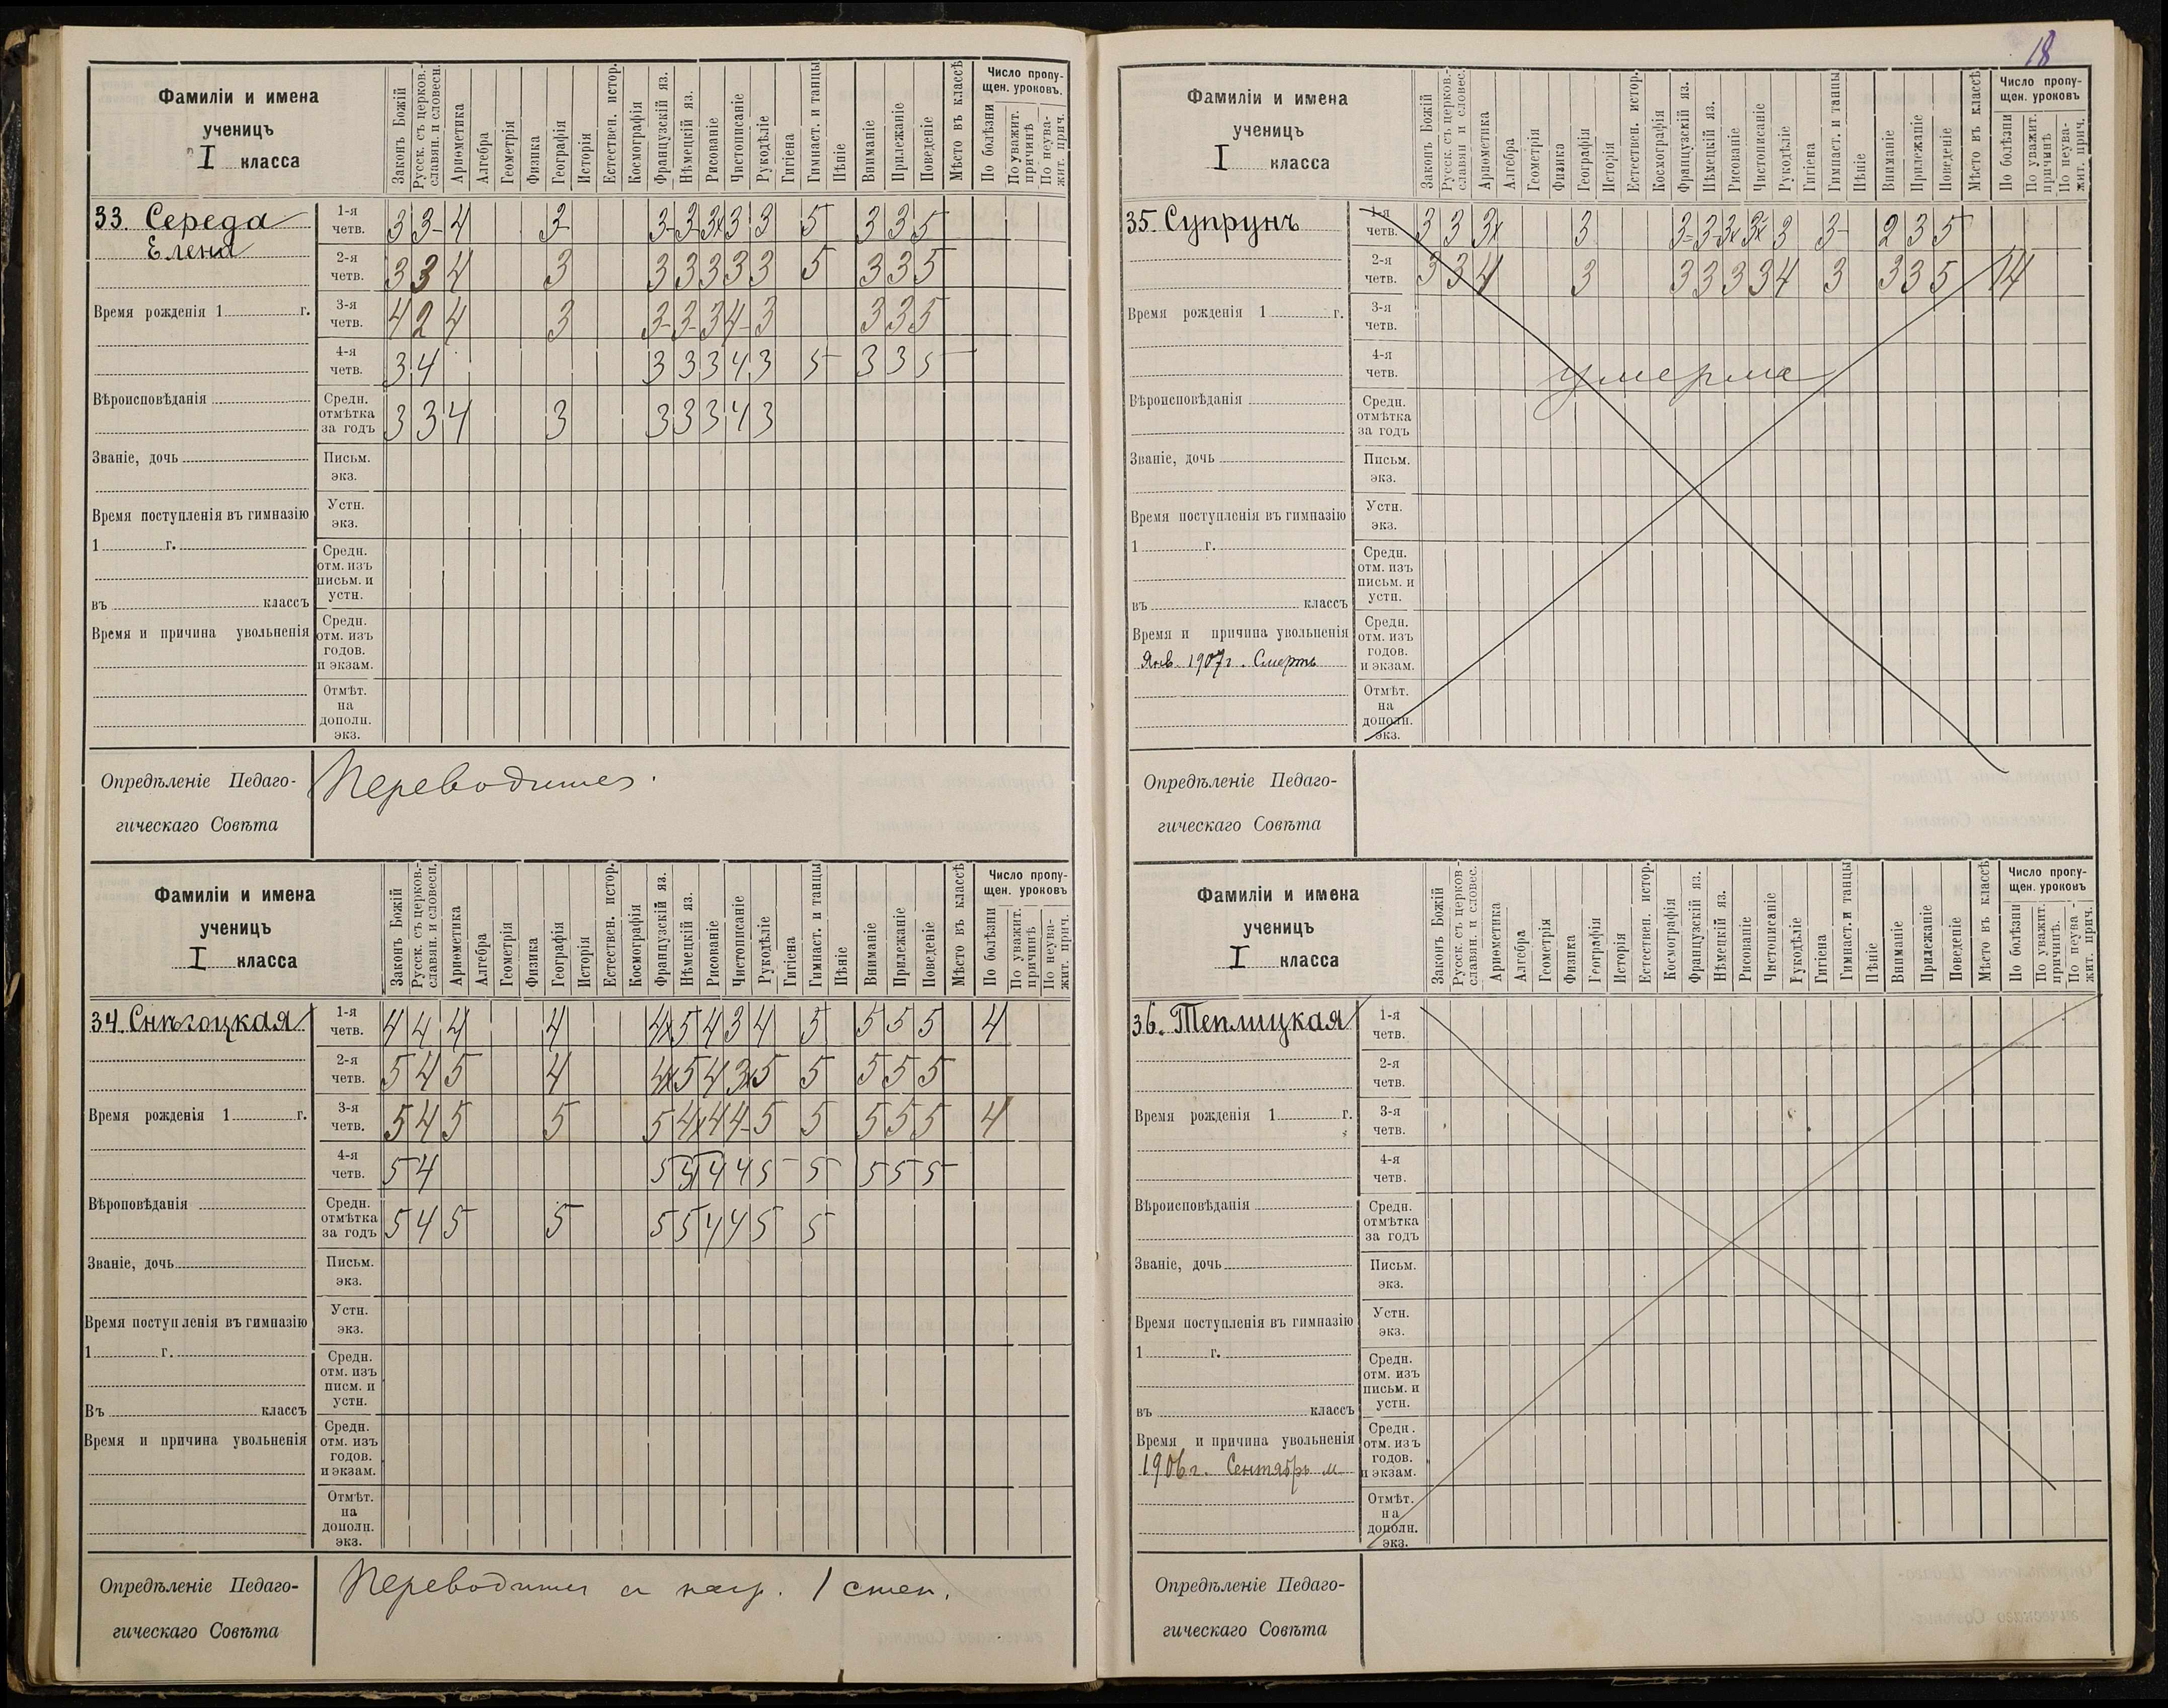 18
Фамиліи и имена
ученицъ
I класса
Законъ Божій
Русск. съ церков.-славян. и словесн.
Ариѳметика
Алгебра
Геометрія
Физика
Географія
Исторія
Естествен. истор.
Космографія
Французскій яз.
Нѣмецкій яз.
Рисованіе
Чистописаніе
Рукодѣліе
Гигіена
Гимнаст. и танцы
Пѣніе
Вниманіе
Прилежаніе
Поведеніе
Мѣсто въ классѣ
Число пропущен. уроковъ.
По болѣзни
По уважит. причинѣ
По неуважит. прич.
33. Середа
Елена
1-я четв. 3 3- 4 3- 3- 3 3 3 3 5 3 3 5
2-я четв. 3 3 4 3 3 3 3 3 3 5 3 3 5
Время рожденія 1 г.
3-я четв. 4 2 4 3 3- 3- 3 4- 3 3 3 5
4-я четв. 3 4 3 3 3 4 3 5 3 3 5
Вѣроисповѣданія
Средн. отмѣтка за годъ 3 3 4 3 3 3 3 4 3
Званіе, дочь
Письм. экз.
Время поступленія въ гимназію
Устн. экз.
1 г.
Средн. отм. изъ письм. и устн.
въ классъ
Время и причина увольненія
Средн. отм. изъ годов. и экзам.
Отмѣт. на дополн. экз.
Опредѣленіе Педаго-
гическаго Совѣта
Переводится.
Фамиліи и имена
ученицъ
I класса
Законъ Божій
Русск. съ церков.-славян. и словесн.
Ариѳметика
Алгебра
Геометрія
Физика
Географія
Исторія
Естествен. истор.
Космографія
Французскій яз.
Нѣмецкій яз.
Рисованіе
Чистописаніе
Рукодѣліе
Гигіена
Гимнаст. и танцы
Пѣніе
Вниманіе
Прилежаніе
Поведеніе
Мѣсто въ классѣ
Число пропущен. уроковъ
По болѣзни
По уважит. причинѣ
По неуважит. прич.
34. Снѣгоцкая
1-я четв. 4 4 4 4 4 5 4 3 4 5 5 5 5 4
2-я четв. 5 4 5 4 4 5 4 3 5 5 5 5 5
Время рожденія 1 г.
3-я четв. 5 4 5 5 5 4 4 4- 5 5 5 5 5 4
4-я четв. 5 4 5 5 4 4 5 5 5 5 5
Вѣроповѣданія
Средн. отмѣтка за годъ 5 4 5 5 5 5 4 4 5 5
Званіе, дочь
Письм. экз.
Время поступленія въ гимназію
Устн. экз.
1 г.
Средн. отм. изъ писм. и устн.
Въ классъ
Время и причина увольненія
Средн. отм. изъ годов. и экзам.
Отмѣт. на дополн. экз.
Опредѣленіе Педаго-
гическаго Совѣта
Переводится съ нагр. 1 степ.
Фамиліи и имена
ученицъ
I класса
Законъ Божій
Русск. съ церков.-славян и словес.
Ариѳметика
Алгебра
Геометрія
Физика
Географія
Исторія
Естествен. истор.
Космографія
Французскій яз.
Нѣмецкій яз.
Рисованіе
Чистописаніе
Рукодѣліе
Гигіена
Гимнаст. и танцы
Пѣніе
Вниманіе
Прилежаніе
Поведеніе
Мѣсто въ классѣ
Число пропущен. уроковъ
По болѣзни
По уважит. причинѣ
По неуважит. прич.
35. Супрунъ
1-я четв. 3 3 3 3 3- 3- 3 3 3 3- 2 3 5
2-я четв. 3 3 4 3 3 3 3 3 4 3 3 3 5 14
Время рожденія 1 г.
3-я четв.
4-я четв.
умерла
Вѣроисповѣданія
Средн. отмѣтка за годъ
Званіе, дочь
Письм. экз.
Время поступленія въ гимназію
Устн. экз.
1 г.
Средн. отм. изъ письм. и устн.
въ классъ
Время и причина увольненія
Янв. 1907 г. Смерть
Средн. отм. изъ годов. и экзам.
Отмѣт. на дополн. экз.
Опредѣленіе Педаго-
гическаго Совѣта
Фамиліи и имена
ученицъ
I класса
Законъ Божій
Русск. съ церков-славян. и словес.
Ариѳметика
Алгебра
Геометрія
Физика
Географія
Исторія
Естествен. истор.
Космографія
Французскій яз.
Нѣмецкій яз.
Рисованіе
Чистописаніе
Рукодѣліе
Гигіена
Гимнаст. и танцы
Пѣніе
Вниманіе
Прилежаніе
Поведеніе
Мѣсто въ классѣ
Число пропущен. уроковъ
По болѣзни
По уважит. причинѣ.
По неуважит. прич.
36. Теплицкая
1-я четв.
2-я четв.
Время рожденія 1 г.
3-я четв.
4-я четв.
Вѣроисповѣданія
Средн. отмѣтка за годъ
Званіе, дочь
Письм. экз.
Время поступленія въ гимназію
Устн. экз.
1 г.
Средн. отм. изъ письм. и устн.
въ классъ
Время и причина увольненія
1906 г. Сентябрь м.
Средн. отм. изъ годов. и экзам.
Отмѣт. на дополн. экз.
Опредѣленіе Педаго-
гическаго Совѣта